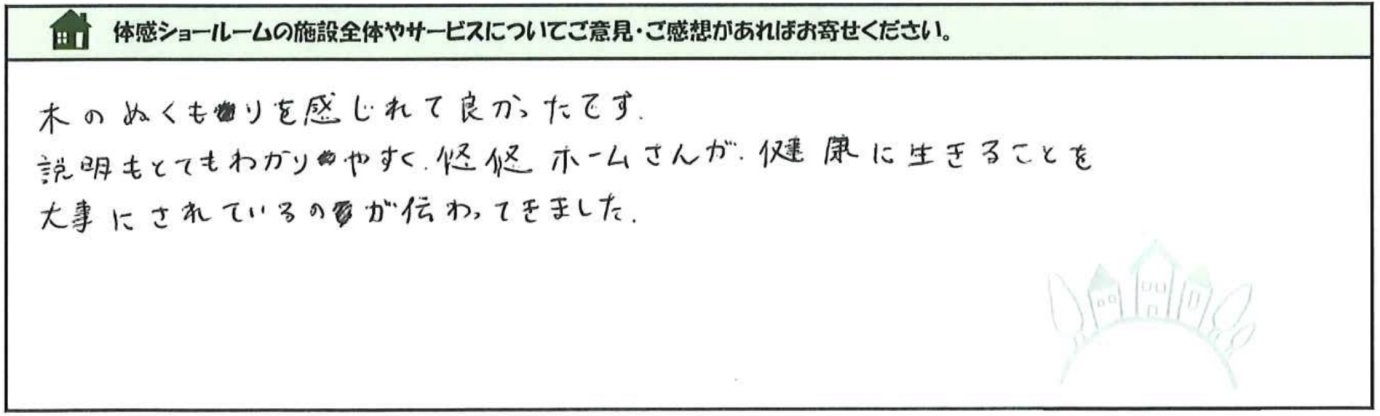 体感ショールームの施設全体やサービスについてご意見・ご感想があればお寄せください。
木のぬくもりを感じれて良かったです.
説明もとてもわかりやすく.悠悠ホームさんが.健康に生きることを
大事にされているのが伝わってきました.